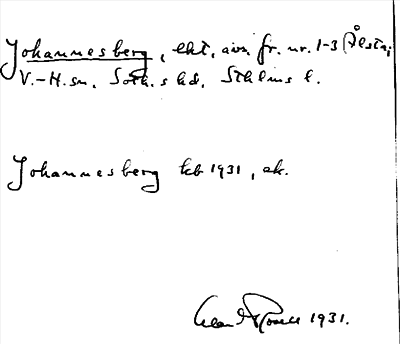 Johannesberg, lht, avs. fr. nr. 1-3 Ålsta,
V.-H.sn. Soth.s hd. Sthlms l.
Johannesberg kb 1931, ak.
1931.